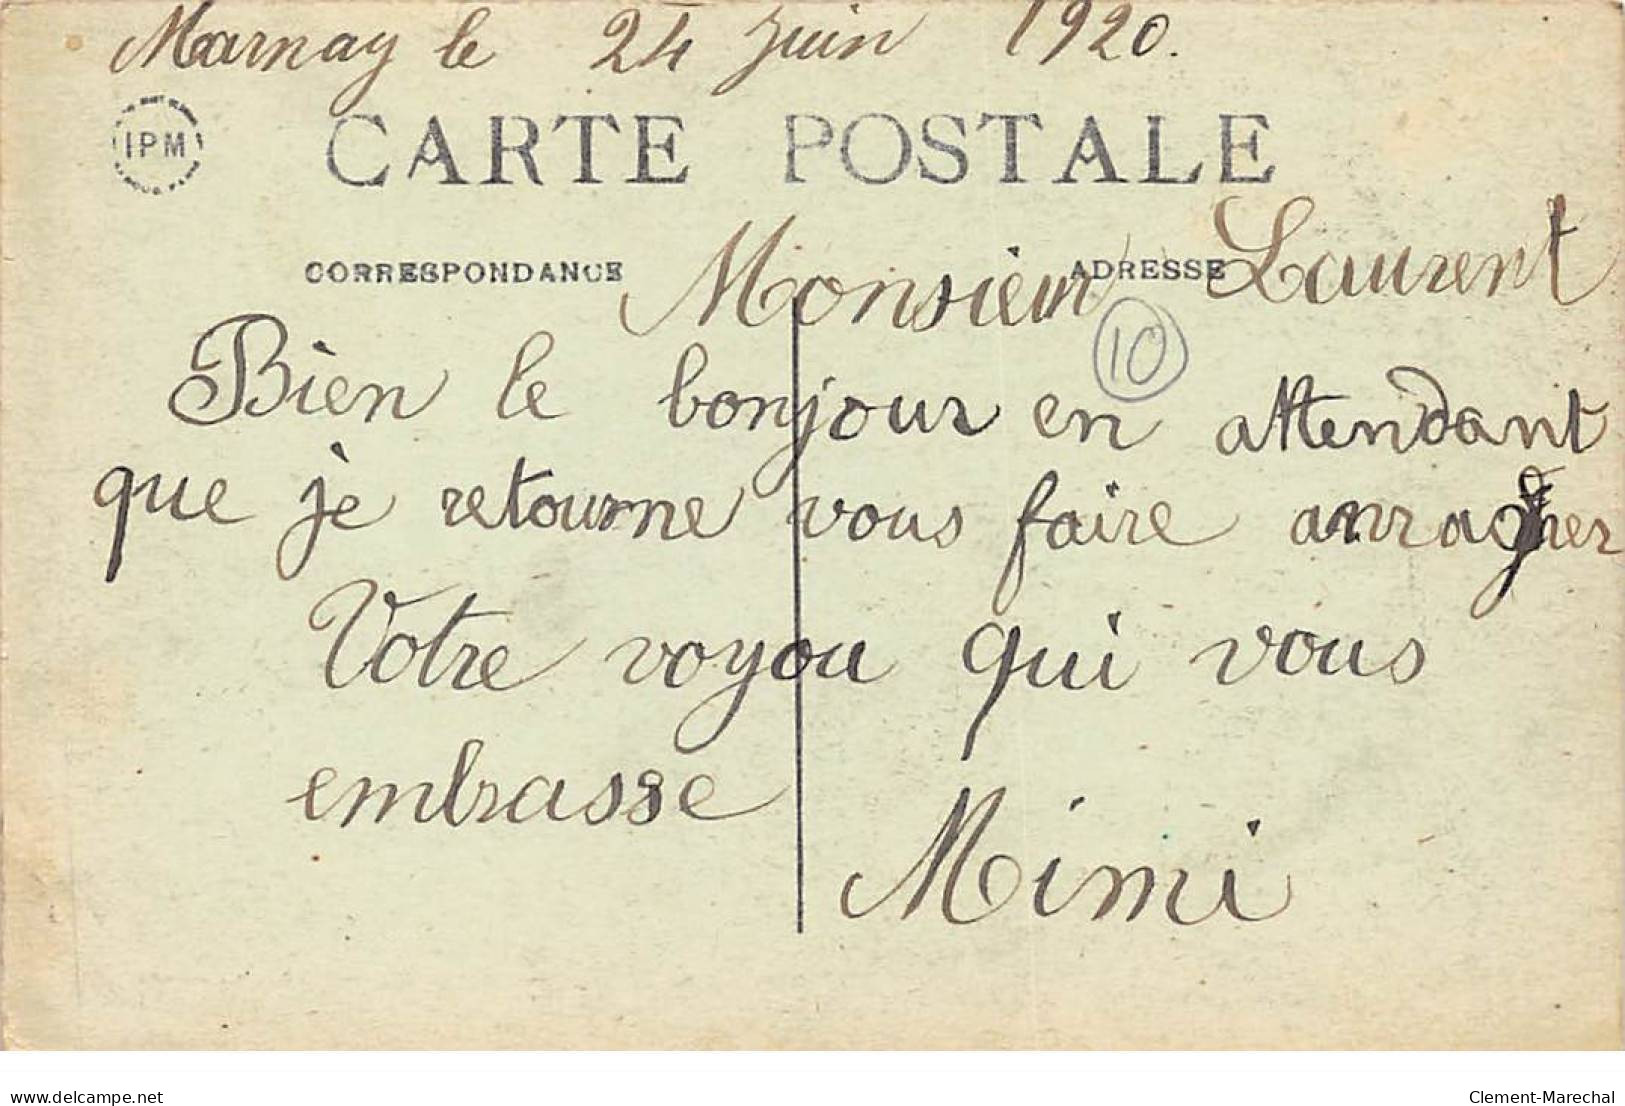 Marnay le 24 Juin 1920.
IPM
CARTE POSTALE
CORRESPONDANCE
ADRESSE
Monsieur Laurent
10
Bien le bonjour en attendant
que je retourne vous faire
Votre voyou qui vous
embrasse
Mimi
www.delcampe.net
Clement-Marechal